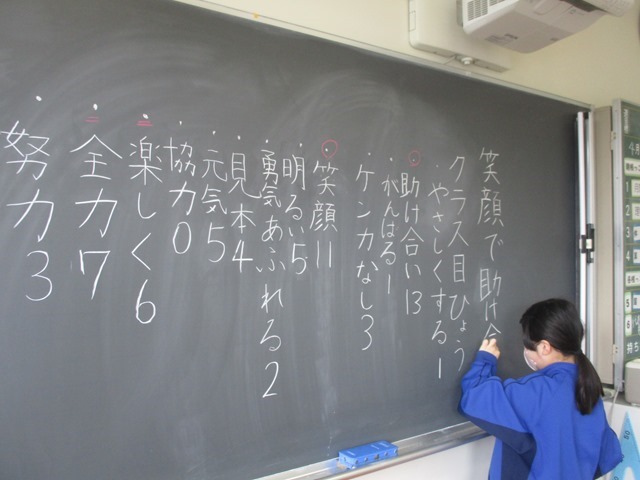 笑顔で助け合
クラス目ひょう
・やさしくする1
・助け合い13
・がんばる1
・ケンカなし3
・笑顔11
・明るい5
・勇気あふれる2
・見本4
・元気5
・協力0
・楽しく6
・全力7
・努力3
4月